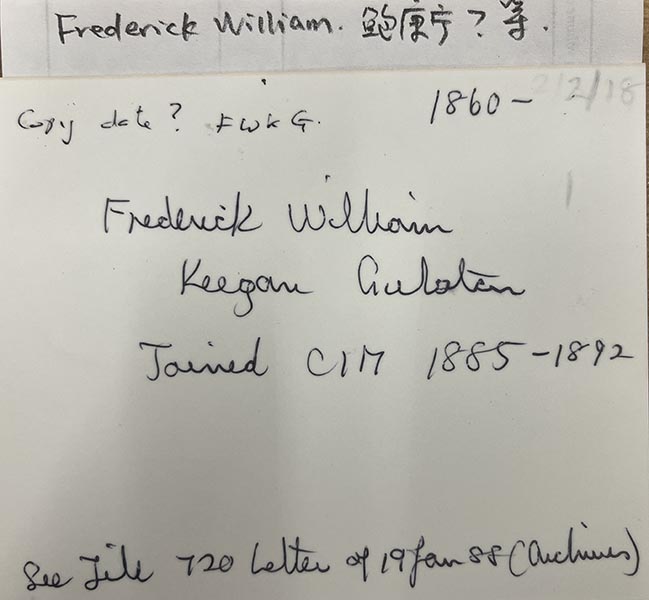 Frederick William. 鲍康宁？等.
Copy date? FWKG. 1860 - 2/2/18
Frederick William
Keegan Gulston
Joined CIM 1885-1892
See File 720 Letter of 19 Jan 88 (Archives)